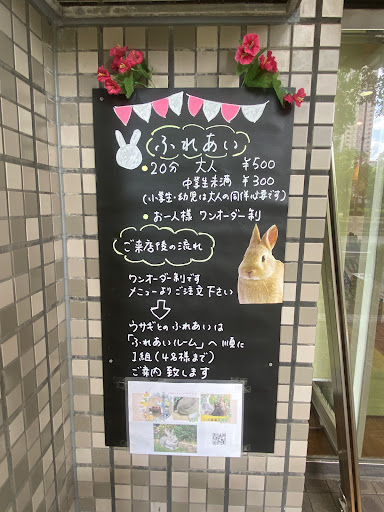 ふれあい
・20分 大人 ¥500
中学生未満 ¥300
(小学生・幼児は大人の同伴必要です)
・お一人様 ワンオーダー制
ご来店後の流れ
ワンオーダー制です
メニューよりご注文下さい
ウサギとのふれあいは
「ふれあいルーム」へ順に
1組(4名様まで)
ご案内致します